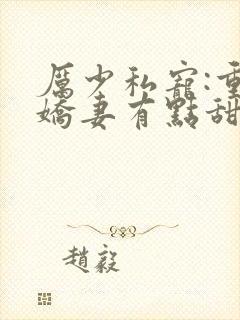 厲少私寵:重
嬌妻有點甜
趙毅